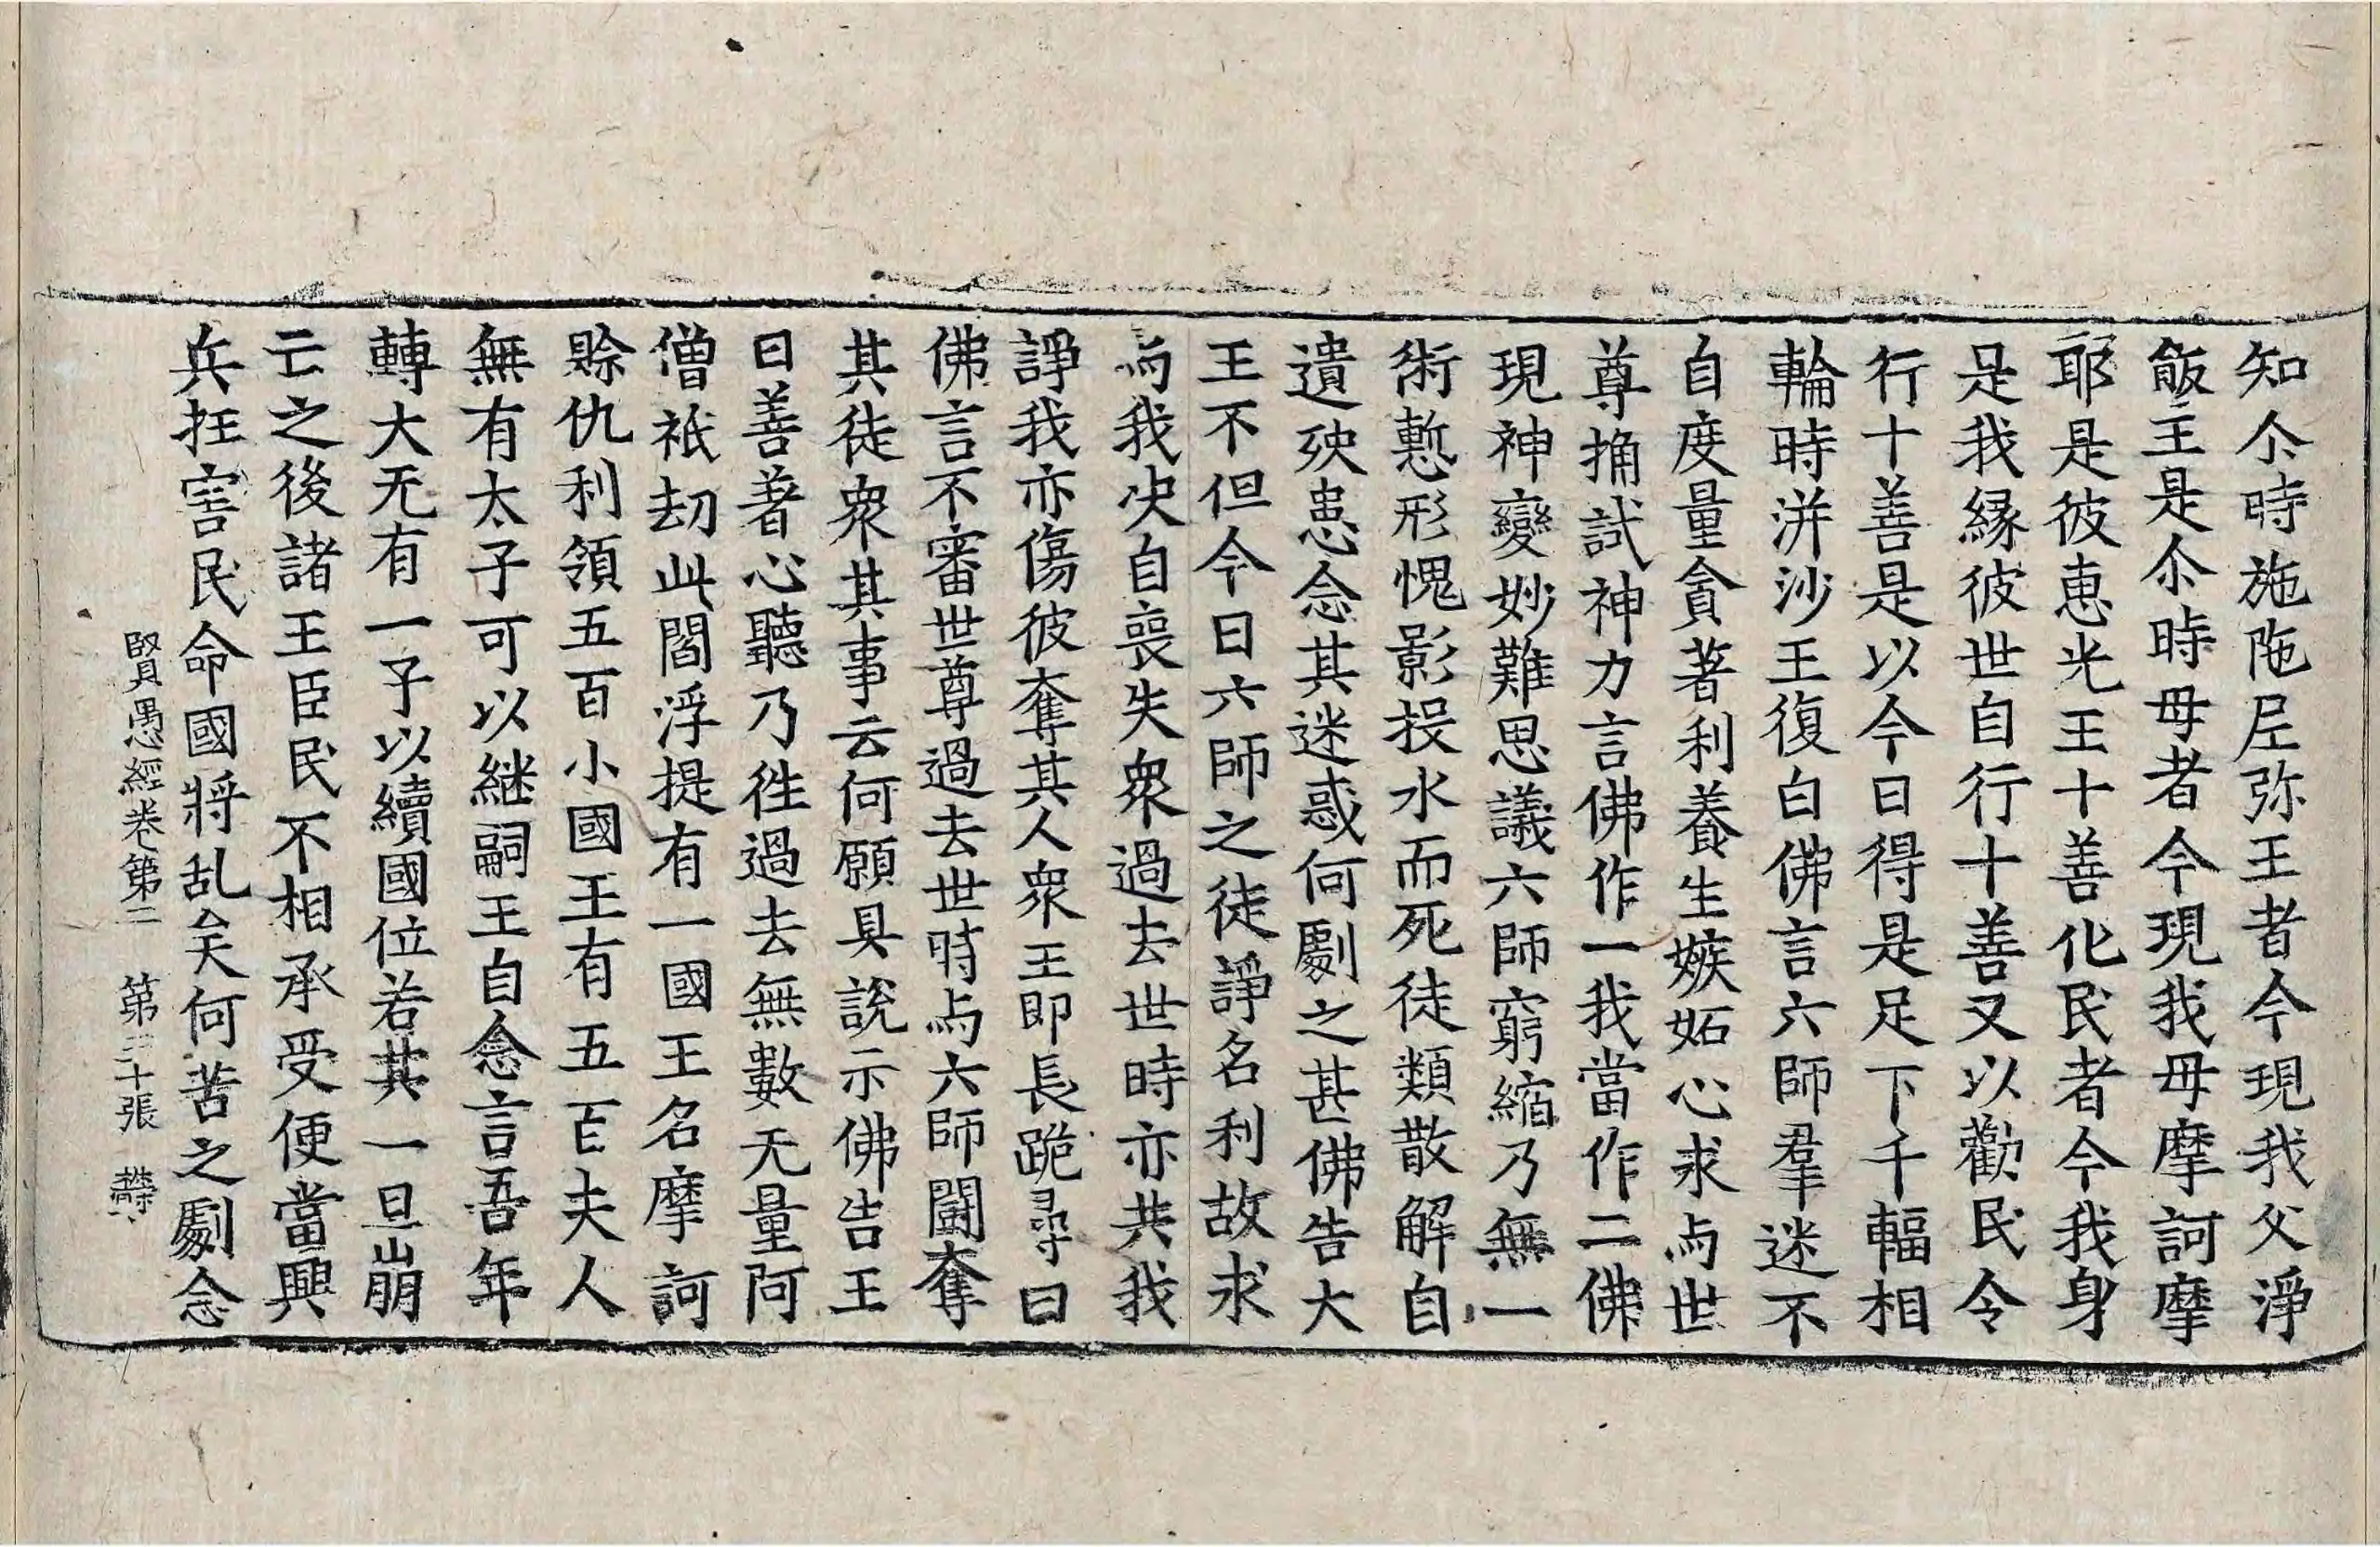 知尒時施陁𡰱弥王者今現我父淨
飯王是尒時母者今現我母摩訶摩
耶是彼恵光王十善化民者今我身
是我緣彼世自行十善又以勸民令
行十善是以今日得是足下千輻相
輪時洴沙王復白佛言六師羣迷不
自度量貪著利養生嫉妬心求与世
尊捔試神力言佛作一我當作二佛
現神變妙難思議六師窮縮乃無一
術慙形愧影投水而死徒類散解自
遺殃患念其迷惑何劇之甚佛告大
王不但今日六師之徒諍名利故求
与我决自喪失衆過去世時亦共我
諍我亦傷彼奪其人衆王即長跪尋曰
佛言不審世尊過去世時与六師鬪奪
其徒衆其事云何願具說示佛告王
曰善著心聽乃徃過去無數无量阿
僧祇刧此閻浮提有一國王名摩訶
賖仇利領五百小國王有五百夫人
無有太子可以継嗣王自念言吾年
轉大无有一子以續國位若其一旦崩
亡之後諸王臣民不相承受便當興
兵抂害民命國將乱矣何苦之劇念
賢愚經卷第二 第三十張